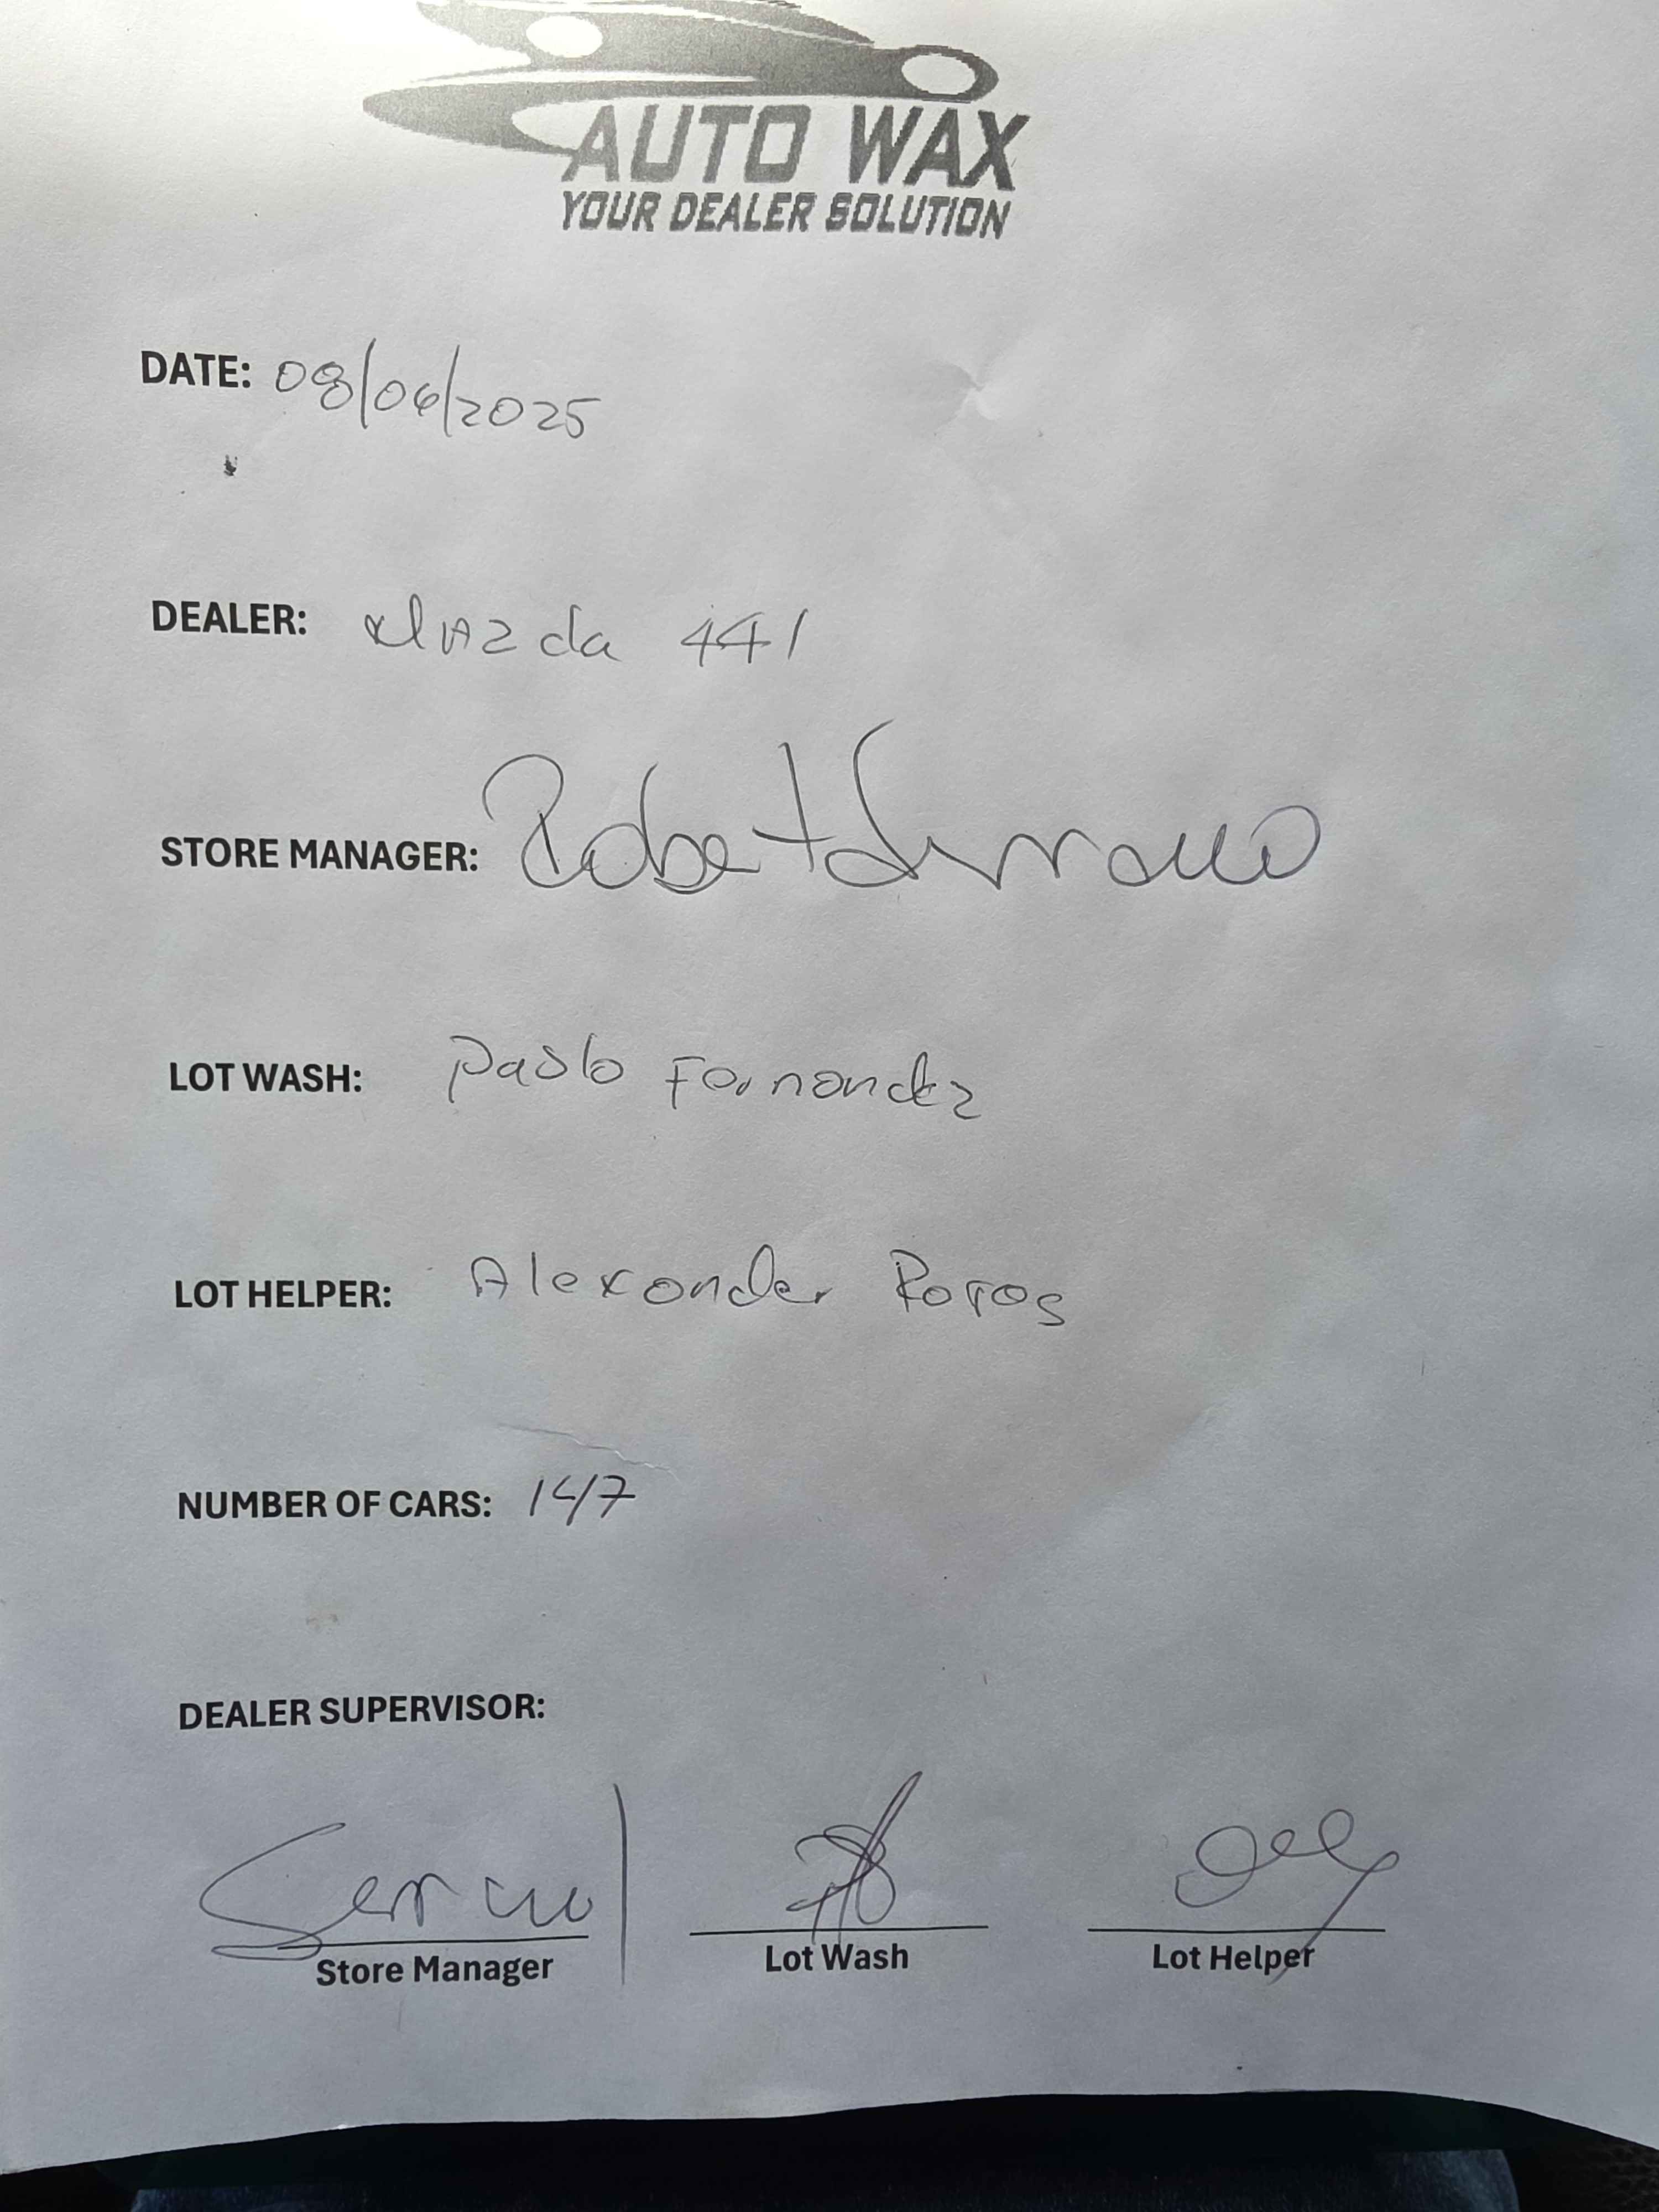 AUTO WAX
YOUR DEALER SOLUTION
DATE: 08/06/2025
DEALER: Mazda 441
STORE MANAGER: Robert Serrano
LOT WASH: Pablo Fernandez
LOT HELPER: Alexander Rojas
NUMBER OF CARS: 147
DEALER SUPERVISOR:
Store Manager
Lot Wash
Lot Helper